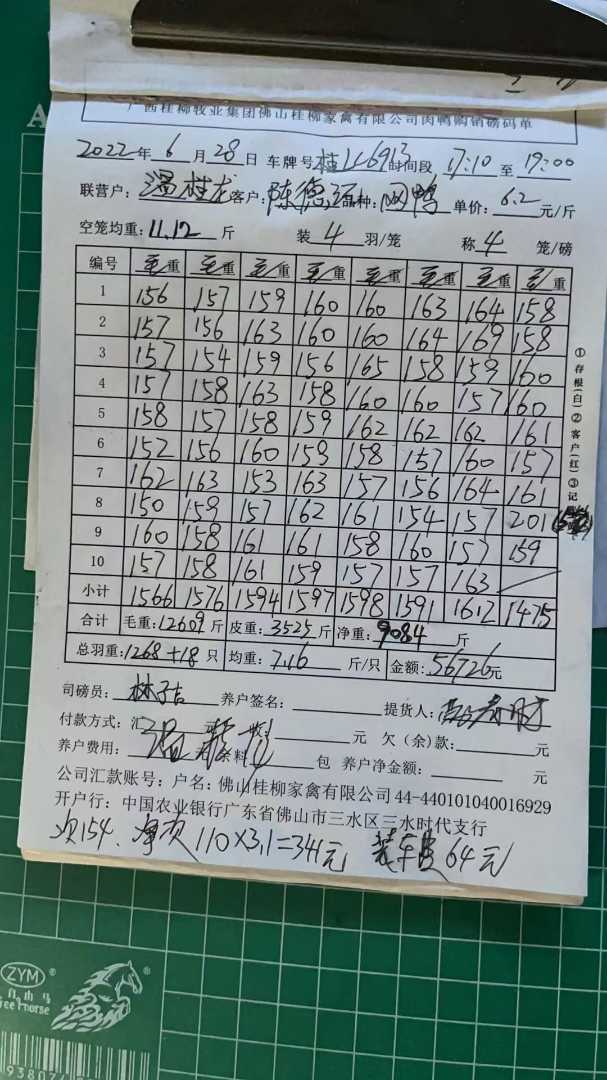 广西桂柳牧业集团佛山桂柳家禽有限公司肉鸭购销磅码单
2022年 6 月 28 日 车牌号 桂 时间段 17:10 至 19:00
联营户: 温桂龙 客户: 陈德 品种: 鸭 单价: 6.2 元/斤
空笼均重: 11.12 斤 装 4 羽/笼 称 4 笼/磅
编号 毛重 毛重 毛重 毛重 毛重 毛重 毛重 毛重
1 156 157 159 160 160 163 164 158
2 157 156 163 160 160 164 169 158
3 157 154 159 156 165 158 159 160
4 157 158 163 158 160 160 157 160
5 158 157 158 159 162 162 162 161
6 152 156 160 159 158 157 160 157
7 162 163 153 163 157 156 164 161
8 150 159 157 162 161 154 157 201
9 160 158 161 161 158 160 157 159
10 157 158 161 159 157 157 163
小计 1566 1576 1594 1597 1598 1591 1612 1475
合计 毛重: 12609 斤 皮重: 3525 斤 净重: 9084 斤
总羽重: 1268+18 只 均重: 7.16 斤/只 金额: 56726元
司磅员: 林子吉 养户签名: 提货人:
付款方式: 汇 元 欠(余)款: 元
养户费用: 余料 包 养户净金额: 元
公司汇款账号: 户名: 佛山桂柳家禽有限公司 44-440101040016929
开户行: 中国农业银行广东省佛山市三水区三水时代支行
次154. 净次 110×3.1=341元 装车皮 64元
①存根(白)②客户(红)③记
ZYM
自由马
Free horse